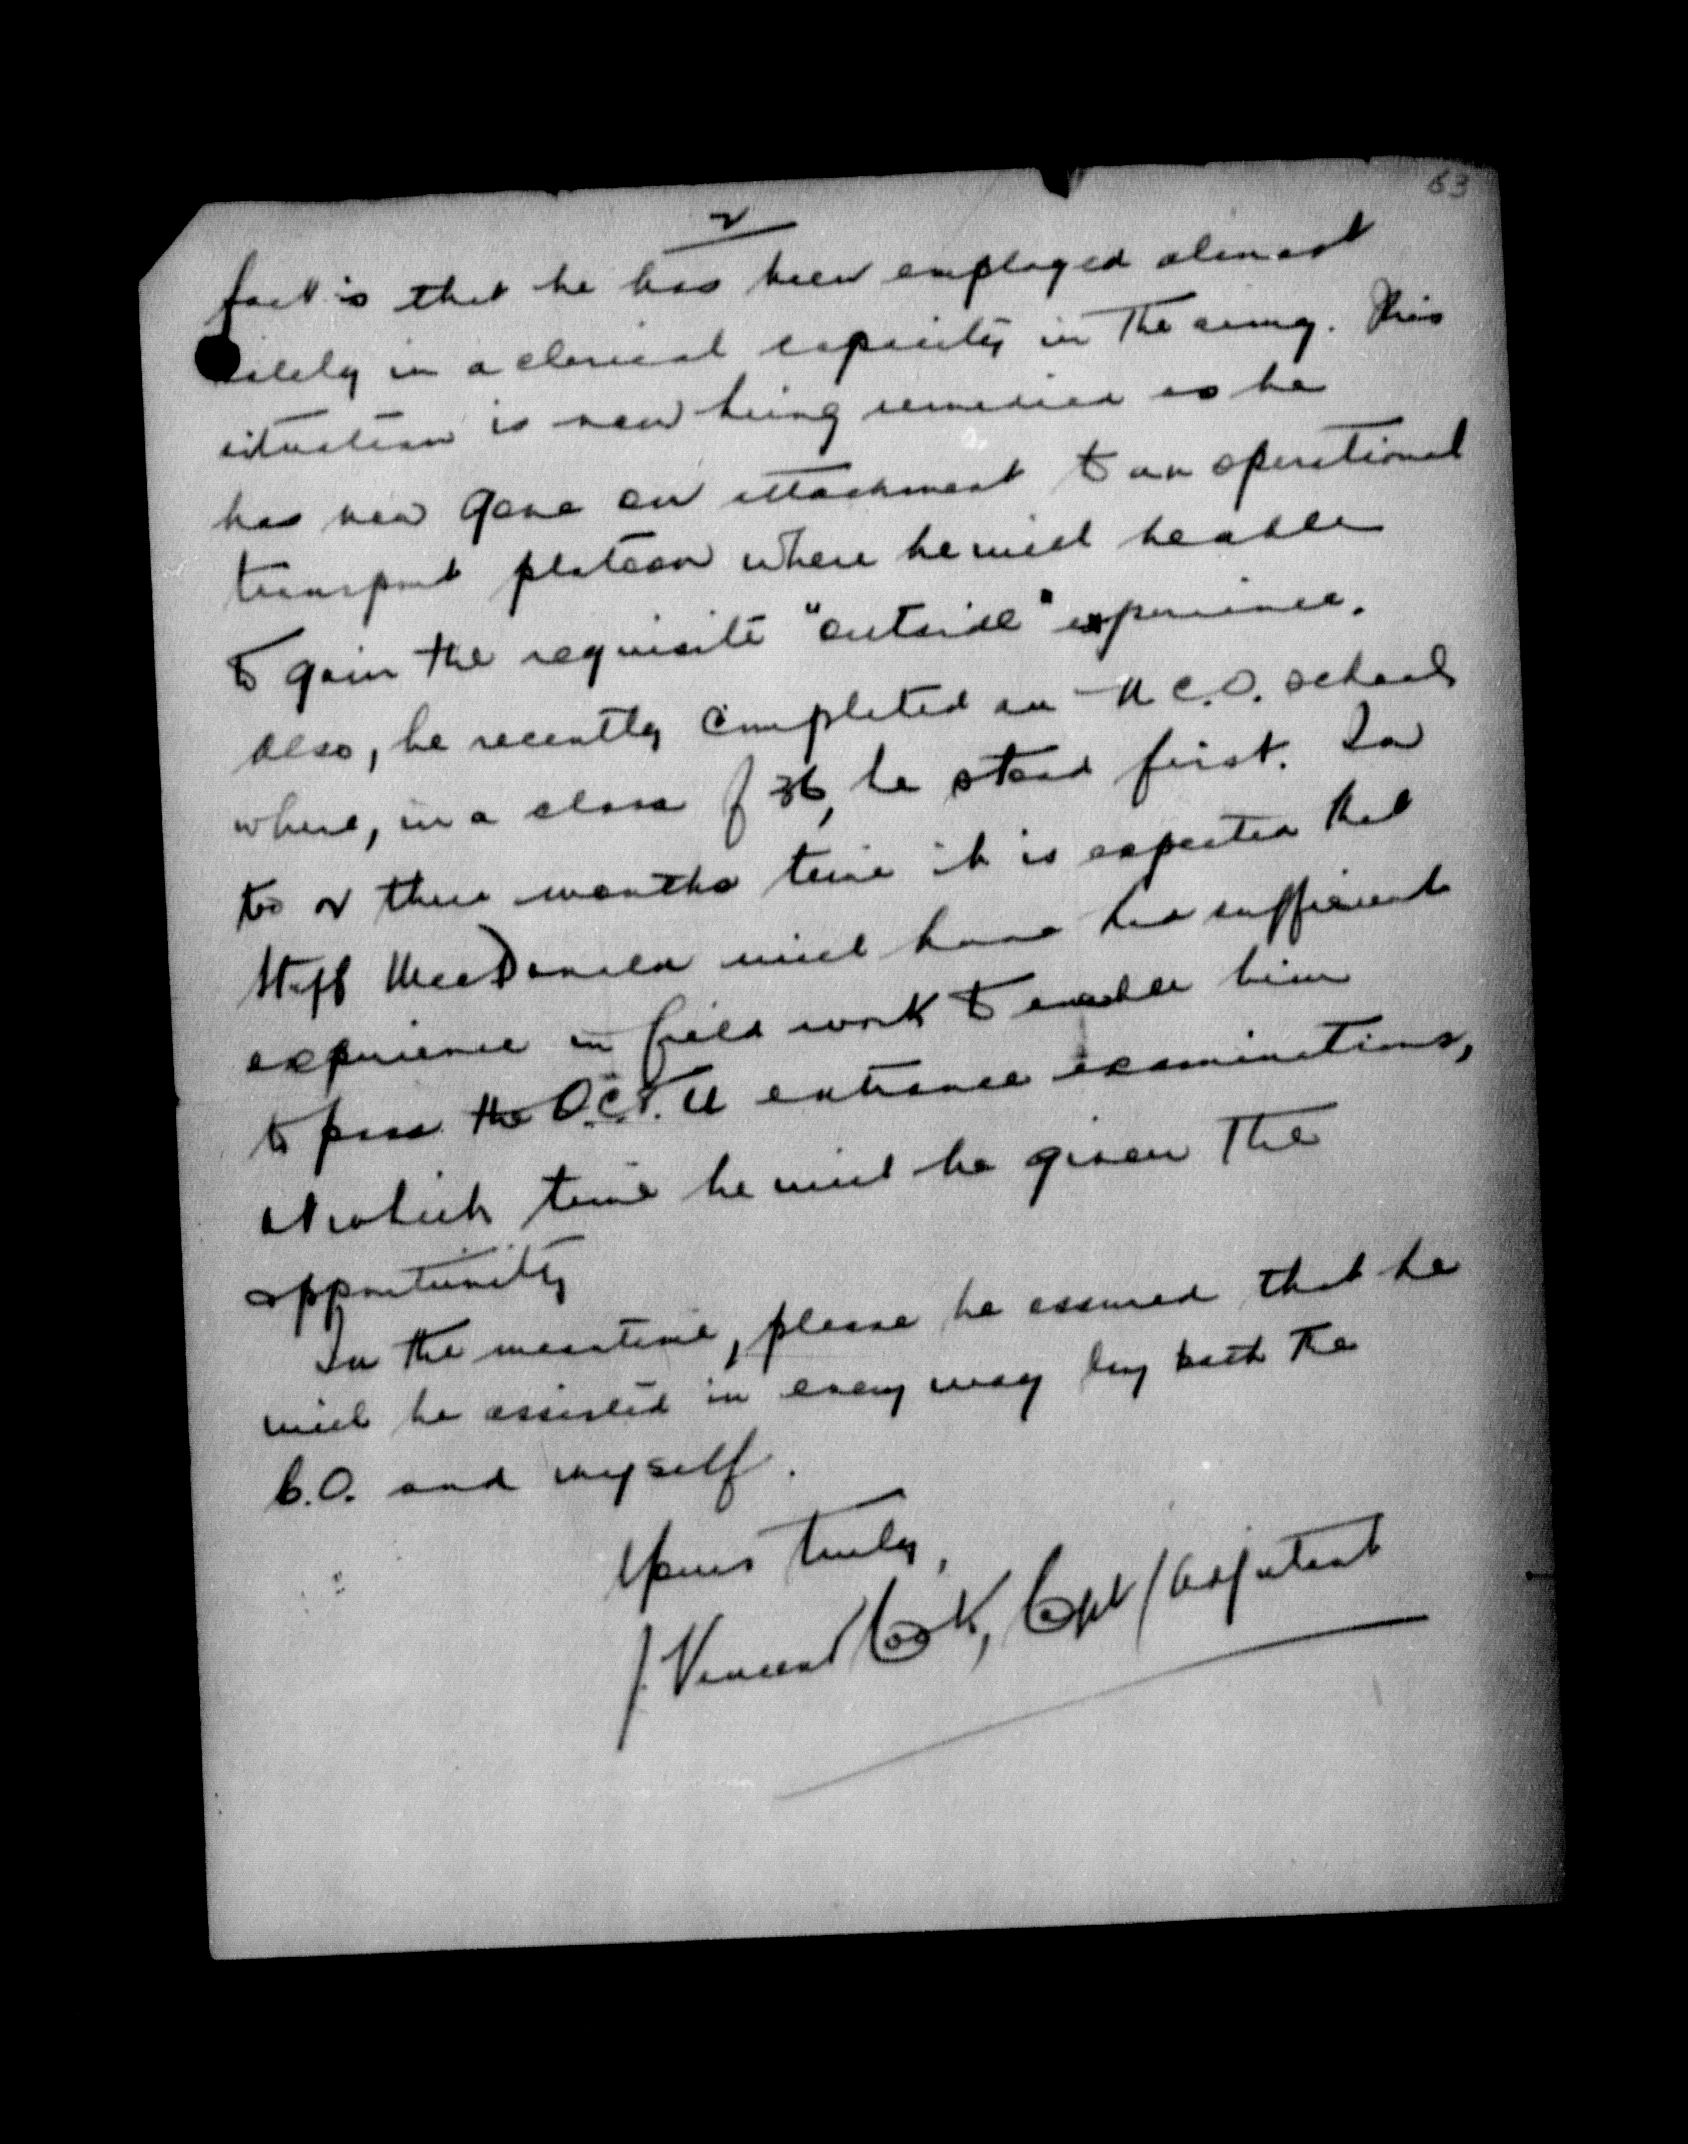 63
2
fact is that he has been employed almost
solely in a clerical capacity in the army. This
situation is now being remedied as he
has now gone on attachment to an operational
transport platoon where he will be able
to gain the requisite "outside" experience.
Also, he recently completed an N.C.O. school
where, in a class of 36, he stood first. In
two or three months time it is expected that
Staff MacDonald will have had sufficient
experience in field work to enable him
to pass the O.C.T.U entrance examinations,
at which time he will be given the
opportunity
In the meantime, please be assured that he
will be assisted in every way by both the
C.O. and myself.
Yours truly,
J. Vincent Cook, Capt/Adjutant